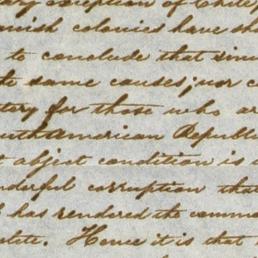 exception of Chile
colonies have
to conclude that
same causes; nor
for those who
American Republi
abject condition is
corruption that
has rendered the
Hence it is that